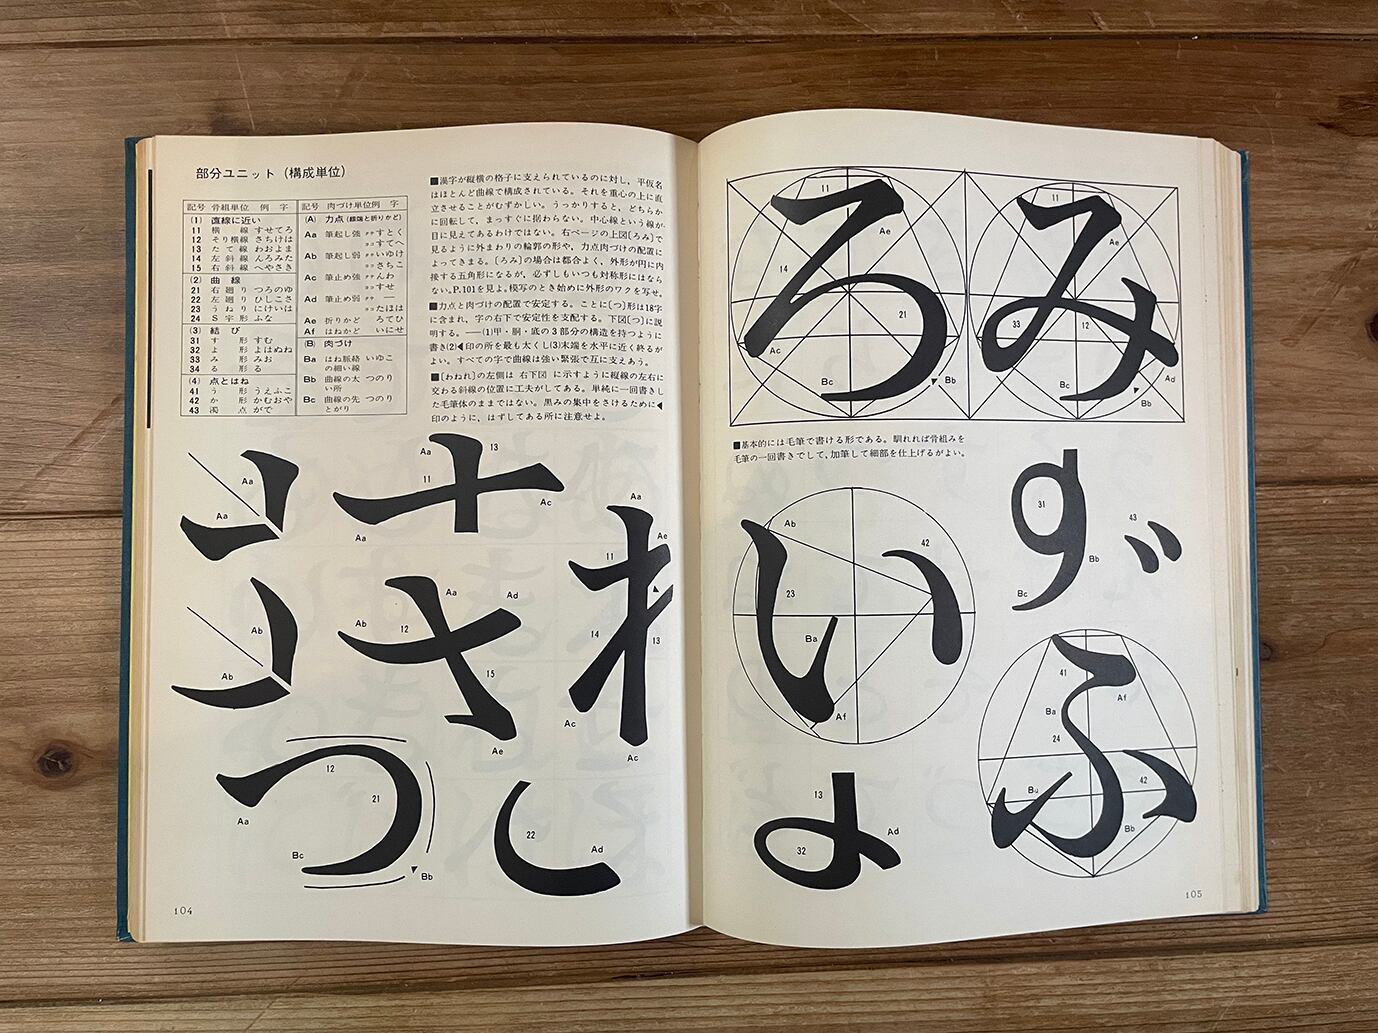 部分ユニット（構成単位）
記号 骨組単位 例 字
(1) 直線に近い
11 横 線 すせてろ
12 そり横線 さちけは
13 たて線 わおよま
14 左斜線 んろみた
15 右斜線 へやさき
(2) 曲 線
21 右廻り つろのゆ
22 左廻り ひしこさ
23 うねり にけいは
24 S字形 ふな
(3) 結 び
31 す 形 すむ
32 よ 形 よはぬね
33 み 形 みお
34 る 形 る
(4) 点とはね
41 う 形 うえふこ
42 か 形 かむおや
43 濁 点 がで
記号 肉づけ単位 例 字
(A) 力点(線端と折りかど)
Aa 筆起し強 タテ すとく
ヨコ すてへ
Ab 筆起し弱 タテ いゆけ
ヨコ さちこ
Ac 筆止め強 タテ んわ
ヨコ すせ
Ad 筆止め弱 タテ ―
ヨコ たはほ
Ae 折りかど ろてひ
Af はねかど いにせ
(B) 肉づけ
Ba はね脈絡の細い線 いゆこ
Bb 曲線の太い所 つのり
Bc 曲線の先とがり つのり
■漢字が縦横の格子に支えられているのに対し，平仮名
はほとんど曲線で構成されている。それを重心の上に直
立させることがむずかしい。うっかりすると，どちらか
に回転して，まっすぐに据わらない。中心線という線が
目に見えてあるわけではない。右ページの上図〔ろみ〕で
見るように外まわりの輪郭の形や，力点肉づけの配置に
よってきまる。〔ろみ〕の場合は都合よく，外形が円に内
接する五角形になるが，必ずしもいつも対称形にはなら
ない。P.101を見よ。模写のとき始めに外形のワクを写せ。
■力点と肉づけの配置で安定する。ことに〔つ〕形は18字
に含まれ，字の右下で安定性を支配する。下図〔つ〕に説
明する。――(1)甲・胴・底の3部分の構造を持つように
書き(2)◀印の所を最も太くし(3)末端を水平に近く終るが
よい。すべての字で曲線は強い緊張で互に支えあう。
■〔わねれ〕の左側は 右下図 に示すように縦線の左右に
交わる斜線の位置に工夫がしてある。単純に一回書きし
た毛筆体のままではない。黒みの集中をさけるために◀
印のように，はずしてある所に注意せよ。
Aa
Aa
Aa
13
11
Ac
Aa
Aa
Ae
11
14
13
Ac
Ac
Ab
Ab
Ab
Aa
Ad
12
15
Ae
つ
12
21
Aa
Bc
Bb
22
Ad
104
ろ
11
Ae
14
21
Ac
Bc
Bb
み
11
Ae
33
12
Ad
Bc
Bb
■基本的には毛筆で書ける形である。馴れれば骨組みを
毛筆の一回書きでして，加筆して細部を仕上げるがよい。
い
Ab
42
23
Ba
Af
31
43
Bb
Bc
ふ
41
Af
Ba
24
42
Ba
Bb
13
Ad
32
105